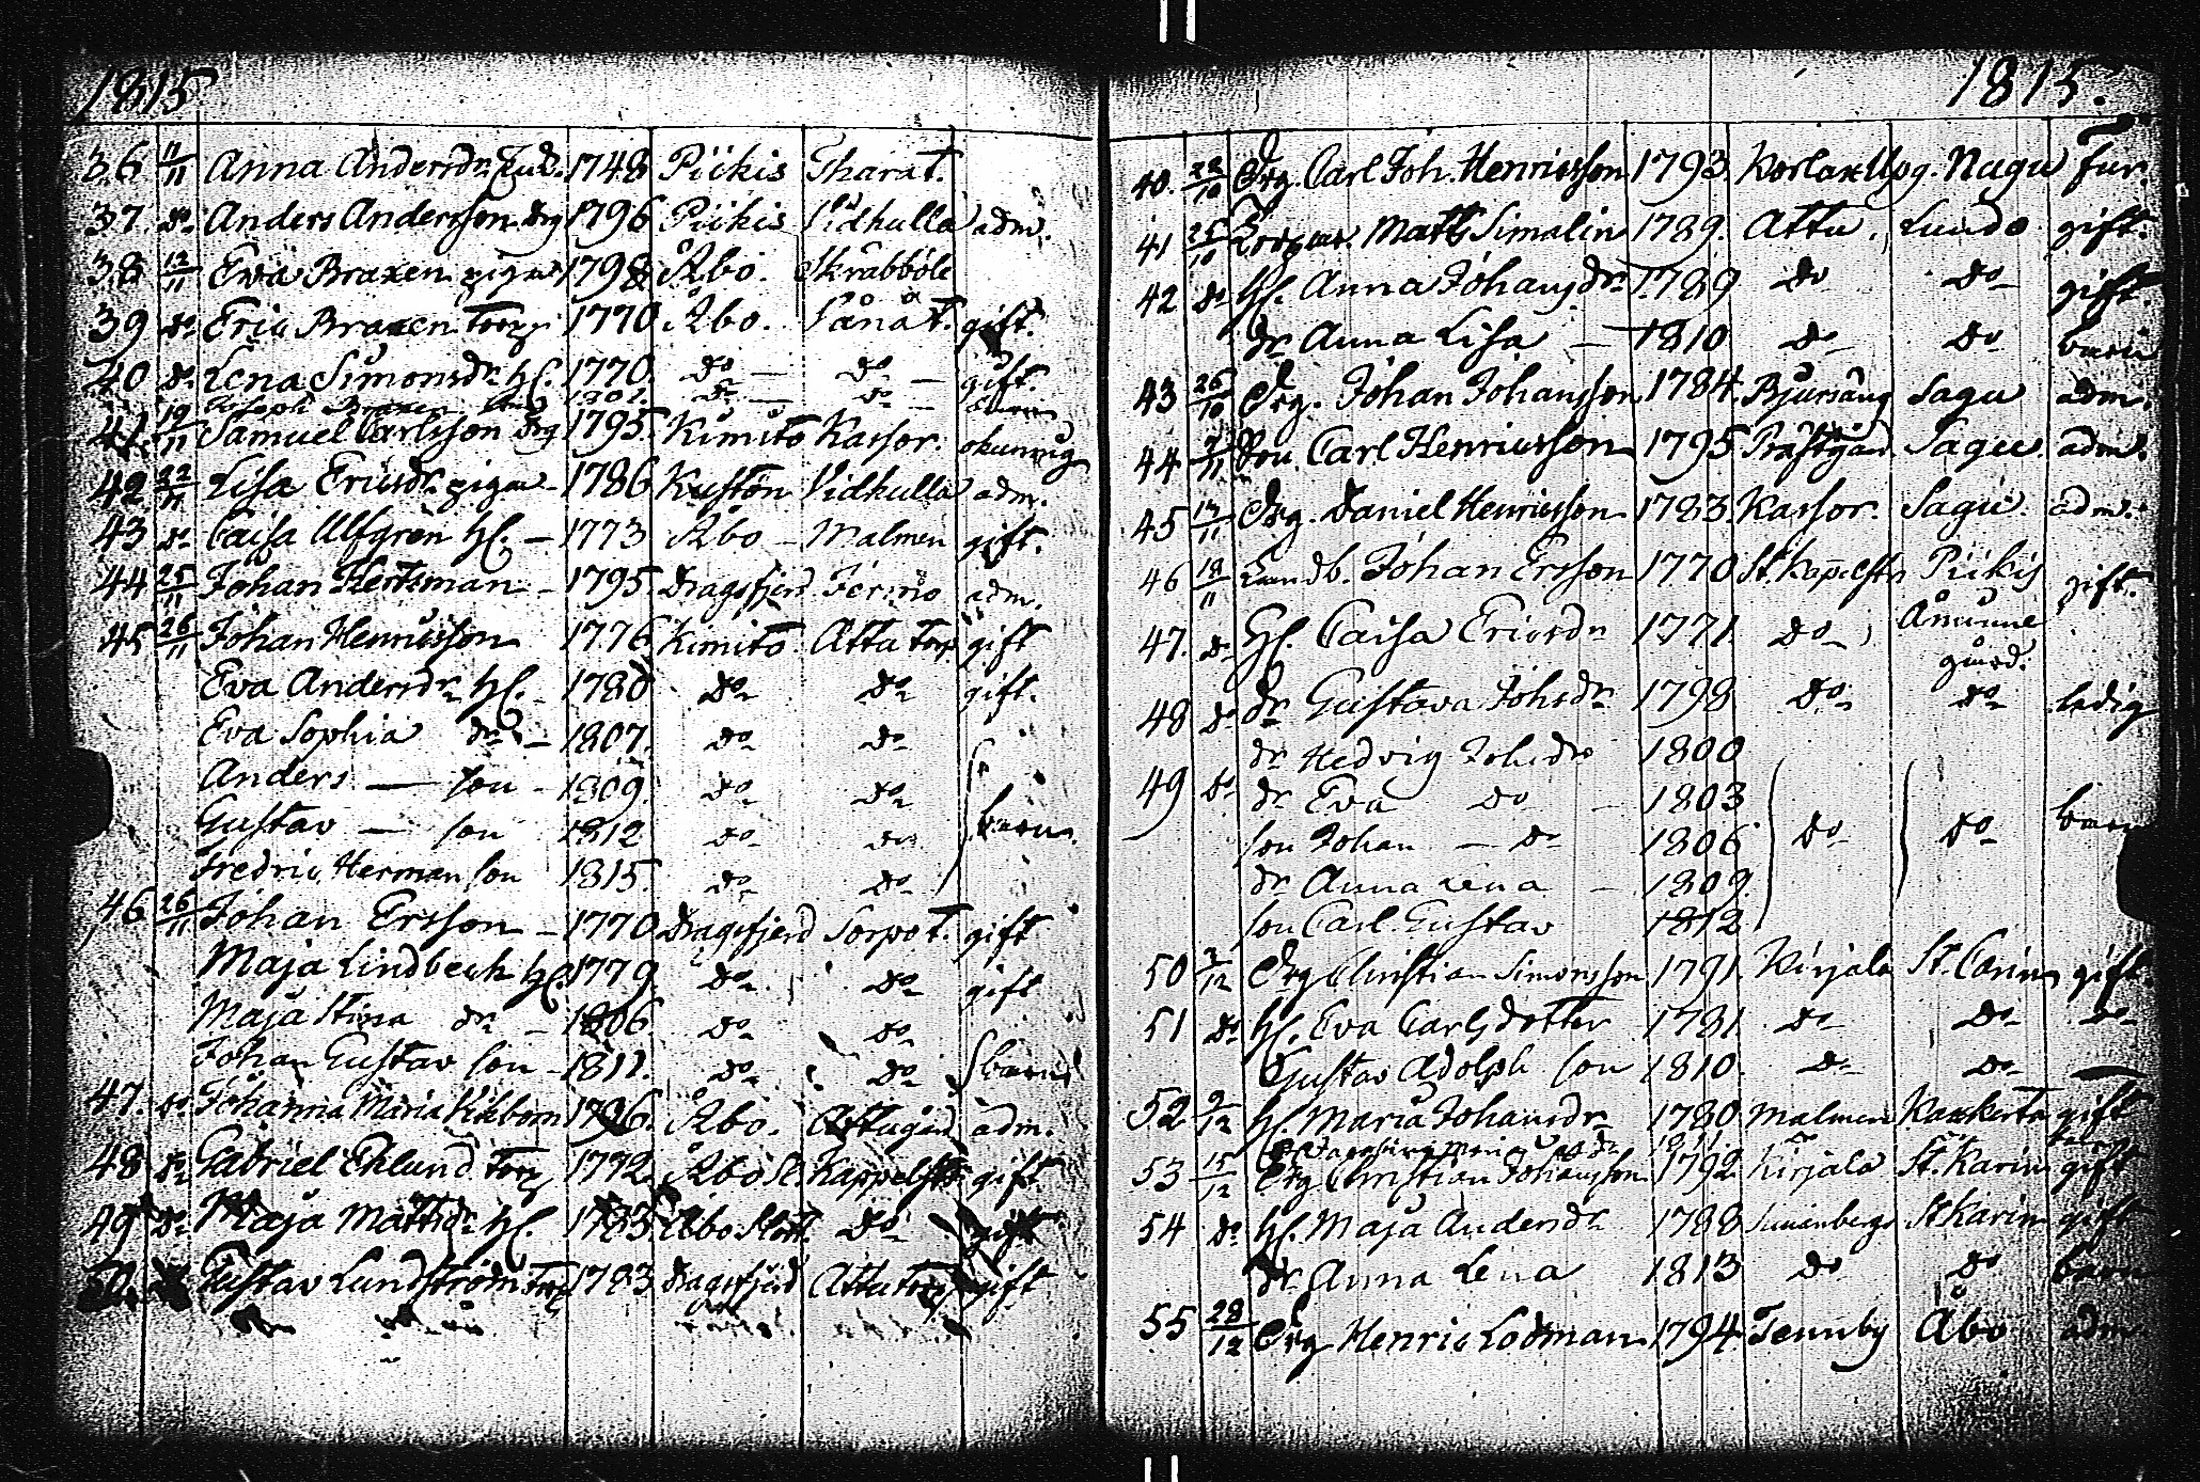 1815
36 11/11 Anna Andersdr 1748 Piikis Tharat.
37. do Anders Andersson drg 1796 Piikis Vidhulla adm.
38 12/11 Eva Braxen piga 1798 Åbo. Skräbböle
39 do Eric Braxen Torp 1770 Åbo. Sånat. gift.
40 do Lena Simonsdr H. 1770. do — do — gift.
Joseph Braxen 1801. do — do — barn
41. 19/11 Samuel Carlsson drg 1795. Kimito Kassor. okunnig
42 22/11 Lisa Ericsdr piga 1786 Kustön Vidhulla adm.
43 do Caisa Ulfgren H. — 1773 Åbo — Malmen gift.
44 25/11 Johan Hertsman — 1795. Dragsfjerd Jermo adm.
45 26/11 Johan Henricsson 1776. Kimito Attu torp gift
Eva Andersdr H. 1780 do do gift.
Eva Sophia dr — 1807. do do
Anders — son — 1809. do do
Gustav — son 1812 do do barn.
Fredric Herman son 1815. do do
46 26/11 Johan Ersson — 1770 Dragsfjerd Sorpo t. gift
Maja Lindbeck H. 1779 do do gift
Maja Stina dr — 1806 do do
Johan Gustav son — 1811. do do barn
47. do Johanna Maria Vikbom 1796. Åbo. Attugård adm.
48 do Gabriel Eklund Torp 1772. Åbo Sl. Kappelstr. gift
49 do Maja Mattsdr H. 1783. Åbo Slott. do gift
50. do Gustav Lundström Torp 1783 Dragsfjerd Attu torp gift
1815.
40. 22/10 Drg. Carl Joh. Henricsson 1793. Korlax Uppg. Nagu fur.
41 25/10 Matts Simalin 1789. Attu. Lundo gift.
42 do H. Anna Johansdr 1789 do do gift.
dr Anna Lisa — 1810 do do barn
43 26/10 Drg. Johan Johansson 1784. Bjursäng Sagu adm.
44 7/11 Dr. Carl Henricsson 1795 Prästgård Sagu adm.
45 17/11 Drg. Daniel Henricsson 1783. Kassor. Sagu adm.
46 18/11 Landb. Johan Ersson 1770 St. Kappelstr. Piikis gift.
47. do H. Caisa Ericsdr 1771. do
48 do dr Gustava Johsdr 1798 do do ledig
dr Hedvig Johsdr 1800
49 do dr Eva do — 1803
son Johan — do 1806 do do barn
dr Anna Lena — 1809
son Carl Gustav 1812
50 7/12 Drg Christian Simonsson 1791. Kirjala St. Carin gift.
51 do H. Eva Carlsdotter 1781 do do do
Gustav Adolph son 1810. do do —
52 9/12 H. Maria Johansdr 1780 Malmen Kaxkerta gift
1811 barn
53 15/12 Drg Christian Johansson 1792. Kirjala St. Karin gift
54 do H. Maja Andersdr 1788 St Karin gift
dr Anna Lena 1813 do do barn
55 28/12 Drg Henric Lodman 1794. Tennby Åbo adm